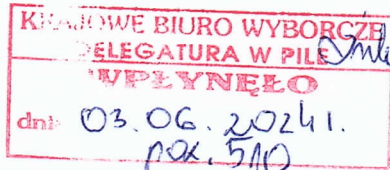 KRAJOWE BIURO WYBORCZE
DELEGATURA W PILE
WPŁYNĘŁO
dnia 03.06.2024 r.
poz. 510